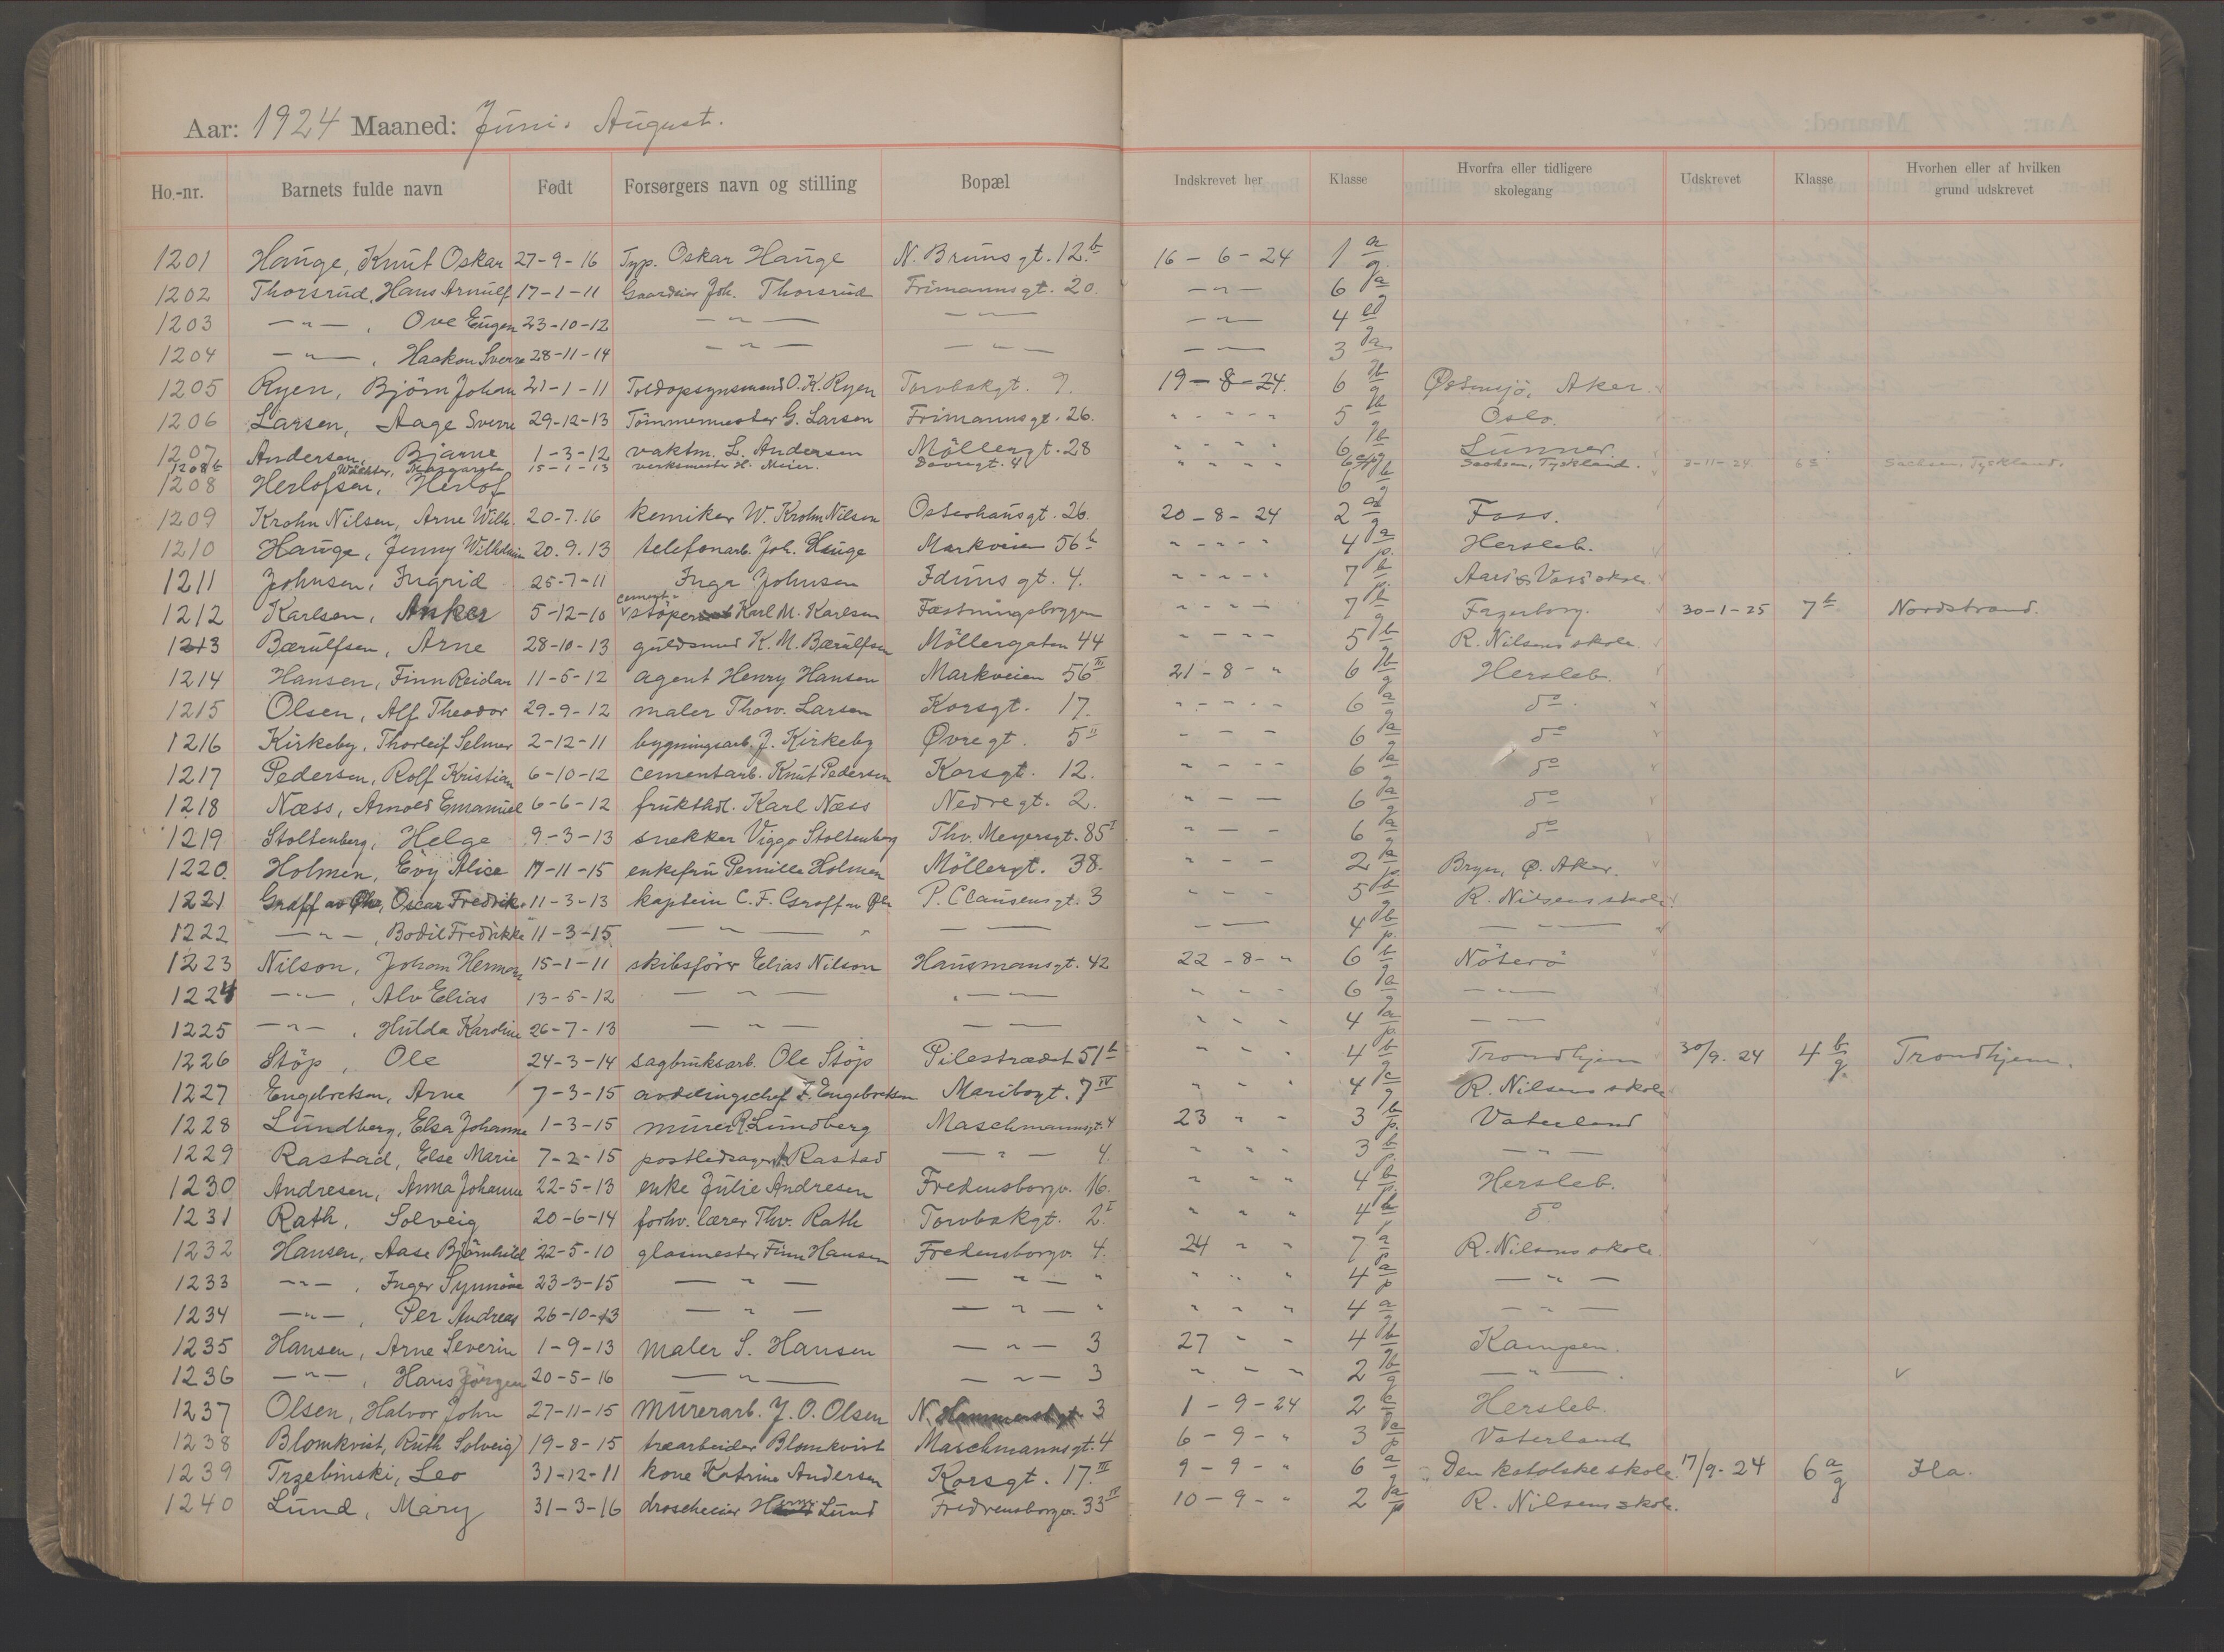 Aar: 1924 Maaned: Juni. August.
Ho.-nr. Barnets fulde navn Født Forsørgers navn og stilling Bopæl Indskrevet her Klasse Hvorfra eller tidligere skolegang Udskrevet Klasse Hvorhen eller af hvilken grund udskrevet
1201 Hauge, Knut Oskar 27-9-16 Typ. Oskar Hauge N. Brunsgt. 12b 16-6-24 1 a/g
1202 Thorsrud, Hans Arnulf 17-1-11 Gaardeier Joh. Thorsrud Frimannsgt. 20. —"— 6
1203 —"—, Ove Eugen 23-10-12 —"— —"— —"— 4
1204 —"—, Haakon Sverre 28-11-14 —"— —"— —"— 3
1205 Ryen, Björn Johan 21-1-11 Toldopsynsmand O. K. Ryen Torvbakgt. 9. 19-8-24. 6 b/g Østensjö, Aker.
1206 Larsen, Aage Sverre 29-12-13 Tömmermester G. Larsen Frimannsgt. 26. " - " - " 5 b/g Oslo.
1207 Andersen, Bjarne 1-3-12 vaktm. L. Andersen Möllergt. 28 " - " - " 6 b Lunner.
1208b Wächter, Margarete 15-1-13 verksmester H. Meier. Dovregt. 4 " " " 6 Sachsen, Tyskland. 3-11-24 Sachsen, Tyskland.
1208 Herlofsen, Herlof 6 b/g
1209 Krohn Nilsen, Arne Wilh. 20-7-16 kemiker W. Krohn Nilsen Osterhausgt. 26. 20-8-24 2 Foss.
1210 Hauge, Jenny Wilhelmine 20.9.13 telefonarb. Joh. Hauge Markveien 56b " - " - " 4 a/p. Hersleb.
1211 Johnsen, Ingrid 25-7-11 Inga Johnsen Idunsgt. 4. " - " - " 7 b/p. Aars & Voss' skole
1212 Karlsen, Anker 5-12-10 cement-støper Karl M. Karlsen Fæstningsbryggen " - " - " 7 b/g Fagerborg. 30-1-25 7b Nordstrand.
1213 Bærulfsen, Arne 28-10-13 guldsmed K. M. Bærulfsen Möllergaten 44 " - " - " 5 b/g R. Nilsens skole
1214 Hansen, Finn Reidar 11-5-12 agent Henry Hansen Markveien 56 III 21-8-" 6 b/g Hersleb.
1215 Olsen, Alf Theodor 29-9-12 maler Thorv. Larsen Korsgt. 17. " - " - " 6 a/g do.
1216 Kirkeby, Thorleif Selmer 2-12-11 bygningsarb. J. Kirkeby Øvregt. 5 II " - - 6 a/g do
1217 Pedersen, Rolf Kristian 6-10-12 cementarb. Knut Pedersen Korsgt. 12. " - - 6 a/g do
1218 Næss, Arnold Emanuel 6-6-12 frukthdl. Karl Næss Nedregt. 2. " - - 6 a/g do
1219 Stoltenberg, Helge 9-3-13 snekker Viggo Stoltenberg Thv. Meyersgt. 85 I " - - 6 a/g do
1220. Holmen, Evy Alise 17-11-15 enkefru Pernille Holmen Möllergt. 38. " - - 2 a/p Bryn, Ø. Aker.
1221 Graff av Øhe, Oscar Fredrik. 11-3-13 kaptein C. F. Graff P. Clausensgt. 3 " - - 5 b/g R. Nilsens skole.
1222 —"—, Bodil Fredrikke 11-3-15 —"— — — — — 4 b/p. — —
1223 Nilson, Johan Herman 15-1-11 skibsförer Elias Nilson Hausmansgt. 42 22-8-" 6 b/g Nöterö
1224 —"—, Alv Elias 13-5-12 —"— — — " " " 6 a/g —"—
1225 —"—, Hulda Karoline 26-7-13 —"— — — " " " 4 a/p. — —
1226 Stöp, Ole 24-3-14 sagbruksarb. Ole Stöp Pilestrædet 51b " " " 4 b/g Trondhjem 30/9-24 4 b/g. Trondhjem.
1227 Engebretsen, Arne 7-3-15 avdelingschef Engebretsen Maribogt. 7 IV " " " 4 c/g R. Nilsens skole
1228 Lundberg, Elsa Johanna 1-3-15 murer R. Lundberg Maschmannsgt. 4 23 " " 3 b/p. Vaterland
1229 Rastad, Else Marie 7-2-15 Rastad —"— 4. " " " 3 b/p. —"—
1230 Andresen, Anna Johanne 22-5-13 enke Julie Andresen Fredensborgv. 16. " " " 4 b/p. Hersleb.
1231 Rath, Solveig 20-6-14 forhv. lærer Thv. Rath Torvbakgt. 2 I " " " 4 b do.
1232 Hansen, Aase Björnhild 22-5-10 glasmester Finn Hansen Fredensborgv. 4. 24 " " 7 a/p R. Nilsens skole.
1233 —"—, Inger Synnöve 23-3-15 —"— —"— " " " " 4 a/p —"—
1234 —"—, Per Andreas 26-10-13 —"— —"— " " " " 4 a/g — —
1235 Hansen, Arne Severin 1-9-13 maler S. Hansen —"— 3 27 " " 4 b/g Kampen.
1236 —"—, Hans Jörgen 20-5-16 —"— —"— 3 " " " 2 b/g —"—.
1237 Olsen, Halvor John 27-11-15 murerarb. J. O. Olsen N. 3 1-9-24 2 Hersleb.
1238 Blomkvist, Ruth Solveig 19-8-15 træarbeider Blomkvist Maschmannsgt. 4 6-9-" 3 a/p Vaterland
1239 Trzebinski, Leo 31-12-11 kone Katrine Andersen Korsgt. 17. III 9-9-" 6 a/g Den katolske skole. 17/9-24 6 a/g Ila.
1240 Lund, Mary 31-3-16 droscheeier Lund Fredrensborgv. 33 IV 10-9-" 2 a/p R. Nilsens skole.